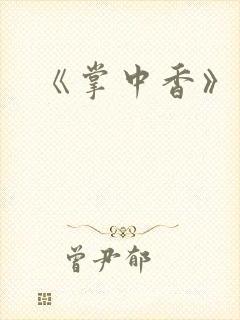 《掌中香》
曾尹郁